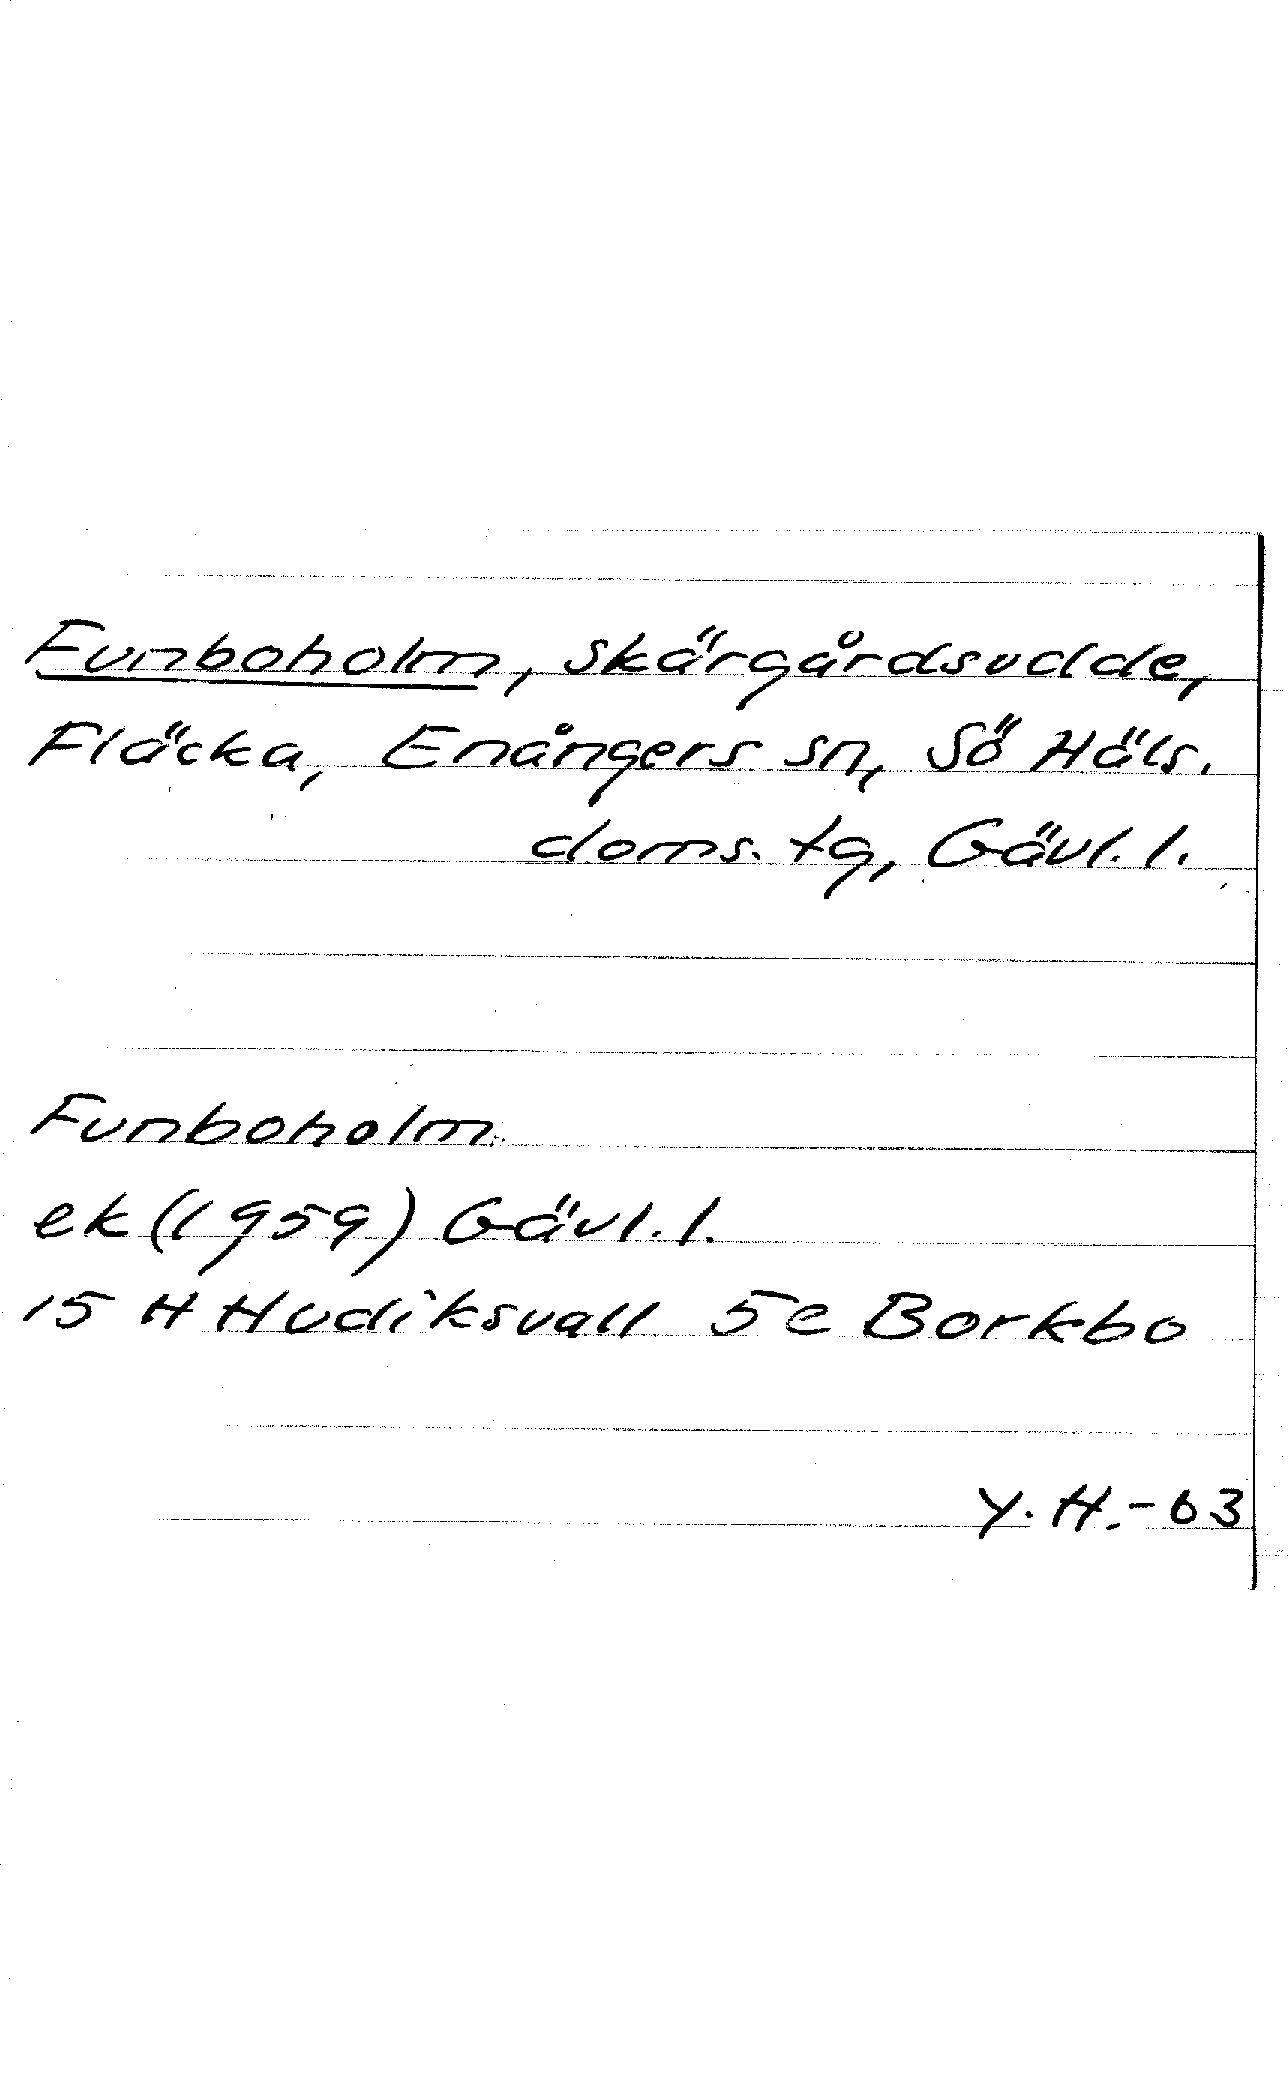 Funboholm, skärgårdsudde,
Fläcka, Enångers sn, Sö Häls.
doms. tg, Gävl. l.
Funboholm
ek (1959) Gävl. l.
15 H Hudiksvall 5e Borkbo
Y. H. -63